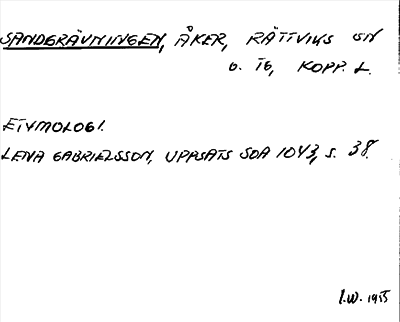 SANDGRÄVNINGEN, ÅKER, RÄTTVIKS SN
O. TG, KOPP. L.
ETYMOLOGI.
LENA GABRIELSSON, UPPSATS SOA 1043, S. 38.
I.W. 1955